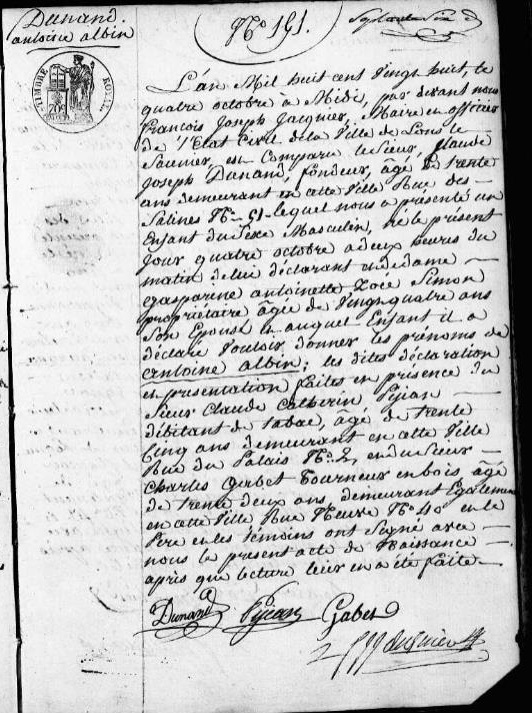 Dunand
antoine albin
N.o 191.
TIMBRE ROYAL
L'an Mil huit cent Vingt huit, le
quatre octobre à Midi, par devant nous
François Joseph Jacquier, Maire en officier
de l'Etat Civil de la Ville de Lons le
Saunier, est Comparu le Sieur, Claude
Joseph Dunand, fondeur, âgé de trente
ans demeurant en cette Ville Rue des
Salines N.o 51 lequel nous a présenté un
Enfant du Sexe Masculin, né le présent
Jour quatre octobre a deux heures du
matin de lui déclarant en dedame
gasparine antoinette Zoée Simon
propriétaire âgée de Vingt quatre ans
Son Epouse en auquel Enfant il a
déclaré Vouloir donner les prénoms de
antoine albin; les dites déclaration
en présentation faites en présence du
Sieur Claude Catherin Pijean
débitant de tabac, âgé de trente
Cinq ans demeurant en cette Ville
Rue du Palais N.o 2, en du Sieur
Charles Gerbet Tourneur en bois âgé
de trente deux ans, demeurant Egalement
en cette Ville Rue Neuve N.o 40 en le
Père en les témoins ont Signé avec
nous le présent acte de Naissance
après que lecture leur en a été faite.
Dunand Pijean Gabet